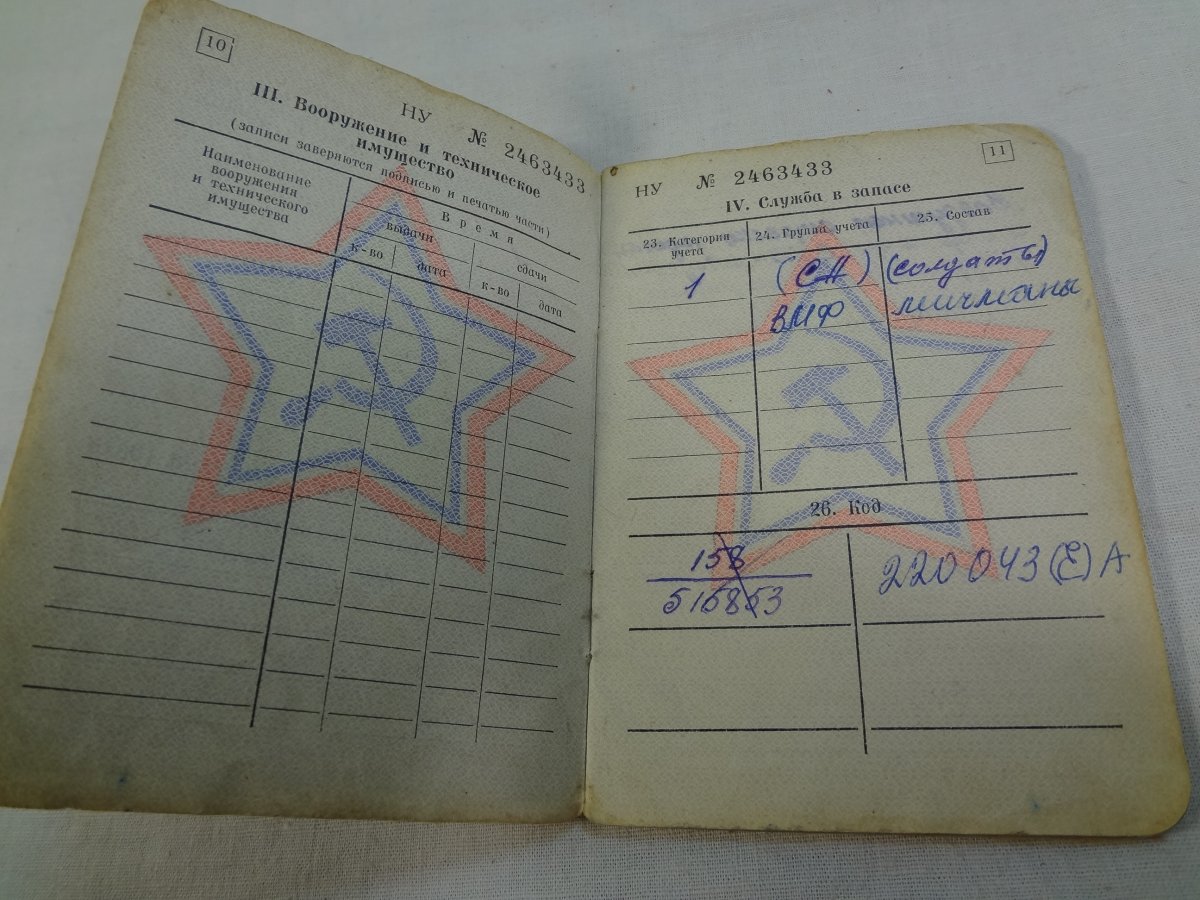 10
НУ № 2463433
III. Вооружение и техническое
имущество
(записи заверяются подписью и печатью части)
Наименование
вооружения
и технического
имущества
Время
выдачи
сдачи
к-во
дата
к-во
дата
11
НУ № 2463433
IV. Служба в запасе
23. Категория
учета
24. Группа учета
25. Состав
1
(СА)
(солдаты)
ВМФ
мичманы
26. Код
158
515853
220043(Е)А